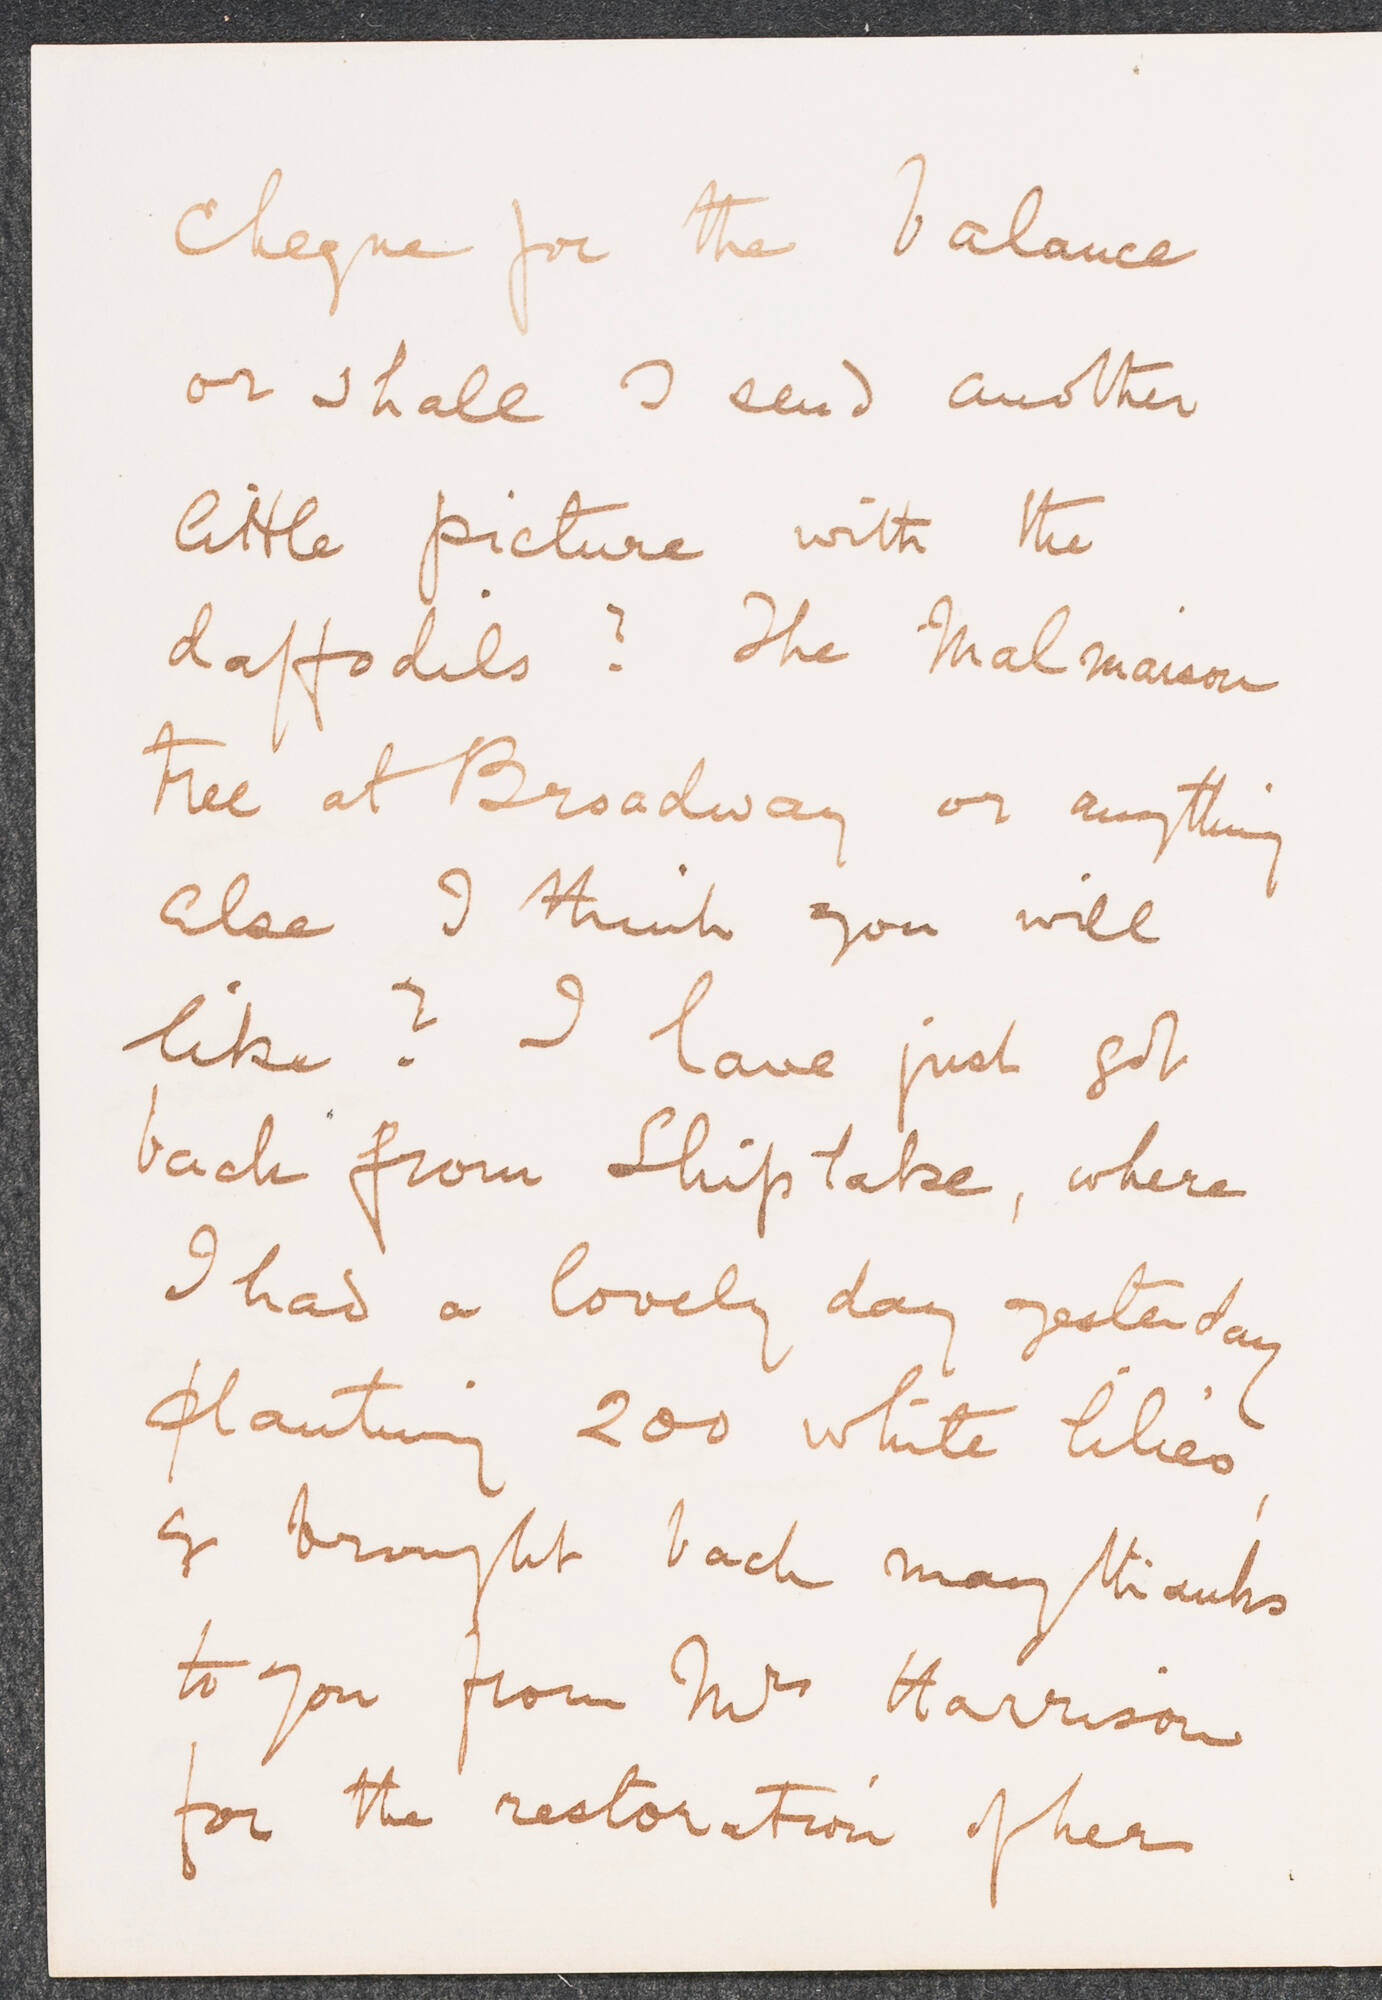 cheque for the balance
or shall I send another
little picture with the
daffodils? The Malmaison
tree at Broadway or anything
else I think you will
like? I have just got
back from Shiplake, where
I had a lovely day yesterday
planting 200 white lilies,
& brought back many thanks
to you from Mrs Harrison
for the restoration of her